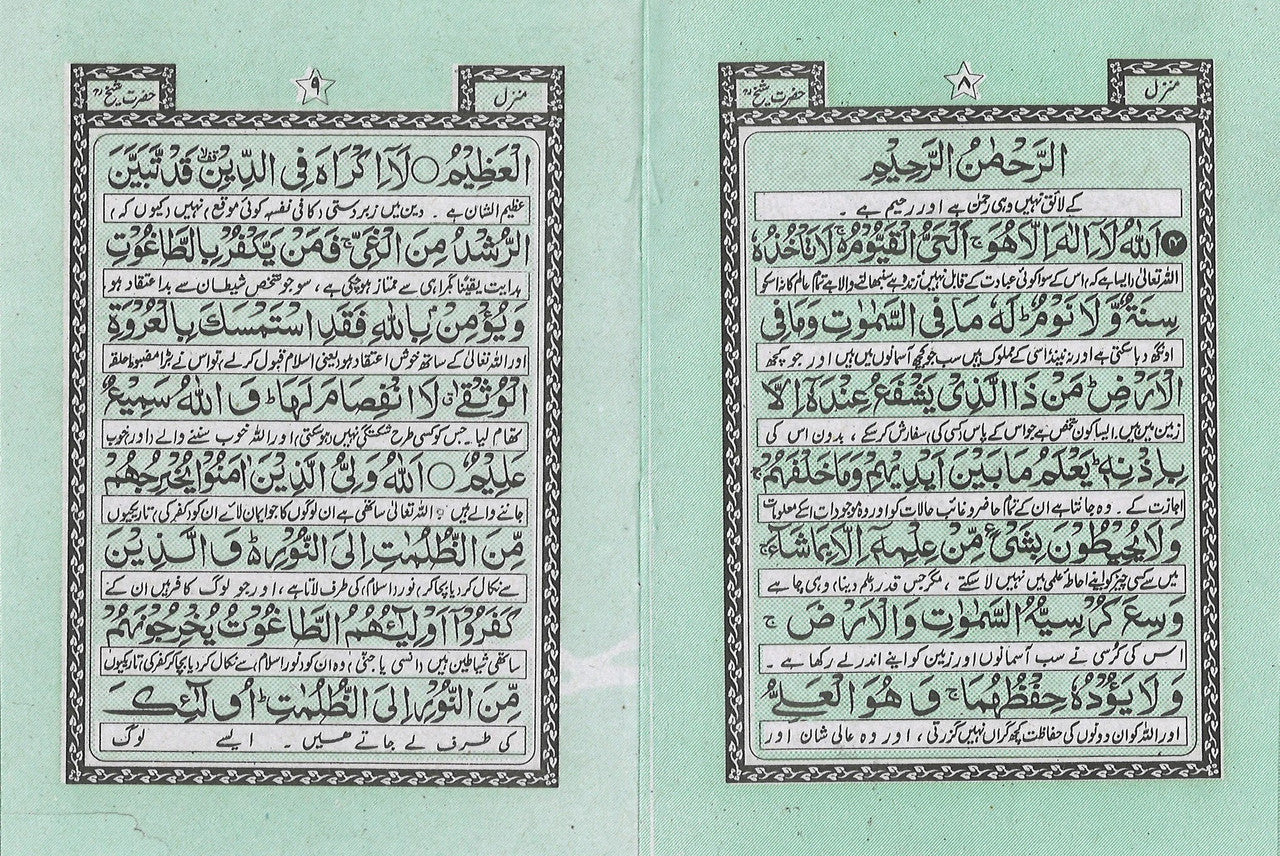 منزل
۸
حضرت شیخؒ
الرَّحْمٰنُ الرَّحِیْمُ
کے لائق نہیں وہی رحمٰن ہے اور رحیم ہے ۔
۱۷ اَللّٰهُ لَاۤ اِلٰهَ اِلَّا هُوَ ۚ اَلْحَیُّ الْقَیُّوْمُ ۚ لَا تَاْخُذُهٗ
اللہ تعالیٰ (ایسا ہے کہ) اس کے سوا کوئی عبادت کے قابل نہیں زندہ ہے سنبھالنے والا ہے تمام عالم کا نہ اسکو
سِنَةٌ وَّلَا نَوْمٌ ؕ لَهٗ مَا فِی السَّمٰوٰتِ وَمَا فِی
اونگھ دبا سکتی ہے اور نہ نیند اسی کے مملوک ہیں سب جو کچھ آسمانوں میں ہیں اور جو کچھ
الْاَرْضِ ؕ مَنْ ذَا الَّذِیْ یَشْفَعُ عِنْدَهٗۤ اِلَّا
زمین میں ہیں ایسا کون شخص ہے جو اس کے پاس (کسی کی) سفارش کر سکے ، بدون اس کی
بِاِذْنِهٖ ؕ یَعْلَمُ مَا بَیْنَ اَیْدِیْهِمْ وَمَا خَلْفَهُمْ ۚ
اجازت کے ۔ وہ جانتا ہے ان کے تمام حاضر و غائب حالات کو اور وہ موجودات اسکے معلومات
وَلَا یُحِیْطُوْنَ بِشَیْءٍ مِّنْ عِلْمِهٖۤ اِلَّا بِمَا شَآءَ ۚ
میں سے کسی چیز کو اپنے احاطۂ علمی میں نہیں لا سکتے ، مگر جس قدر (علم دینا) وہی چاہے
وَسِعَ كُرْسِیُّهُ السَّمٰوٰتِ وَالْاَرْضَ ۚ
اس کی کرسی نے سب آسمانوں اور زمین کو اپنے اندر لے رکھا ہے ۔
وَلَا یَؤُدُهٗ حِفْظُهُمَا ۚ وَهُوَ الْعَلِیُّ
اور اللہ کو ان دونوں کی حفاظت کچھ گراں نہیں گزرتی ، اور وہ عالی شان اور
منزل
۹
حضرت شیخؒ
الْعَظِیْمُ ○ لَاۤ اِكْرَاهَ فِی الدِّیْنِ قف قَدْ تَّبَیَّنَ
عظیم الشان ہے ۔ دین میں زبردستی (کا فی نفسہ کوئی موقع) نہیں (کیوں کہ)
الرُّشْدُ مِنَ الْغَیِّ ۚ فَمَنْ یَّكْفُرْ بِالطَّاغُوْتِ
ہدایت یقیناً گمراہی سے ممتاز ہو چکی ہے ، سو جو شخص شیطان سے بداعتقاد ہو
وَیُؤْمِنْۢ بِاللّٰهِ فَقَدِ اسْتَمْسَكَ بِالْعُرْوَةِ
اور اللہ تعالیٰ کے ساتھ خوش اعتقاد ہو (یعنی اسلام قبول کر لے) تو اس نے بڑا مضبوط حلقہ
الْوُثْقٰی ق لَا انْفِصَامَ لَهَا ؕ وَ اللّٰهُ سَمِیْعٌ
تھام لیا۔ جس کو کسی طرح شکستگی نہیں (ہو سکتی) اور اللہ خوب سننے والے (اور) خوب
عَلِیْمٌ ○ اَللّٰهُ وَلِیُّ الَّذِیْنَ اٰمَنُوْا یُخْرِجُهُمْ
جاننے والے ہیں ۔ اللہ تعالیٰ ساتھی ہے ان لوگوں کا جو ایمان لائے ان کو (کفر کی) تاریکیوں
مِّنَ الظُّلُمٰتِ اِلَی النُّوْرِ ؕ وَ الَّذِیْنَ
سے نکال کر (یا بچا کر) نور (اسلام) کی طرف لاتا ہے ، اور جو لوگ کافر ہیں ان کے
كَفَرُوْۤا اَوْلِیٰٓئُهُمُ الطَّاغُوْتُ یُخْرِجُوْنَهُمْ
ساتھی شیاطین ہیں (انسی یا جنی) وہ ان کو نور (اسلام) سے نکال کر (یا بچا کر) کفر کی) تاریکیوں
مِّنَ النُّوْرِ اِلَی الظُّلُمٰتِ ؕ اُولٰٓئِكَ
کی طرف لے جاتے ہیں ۔ ایسے لوگ